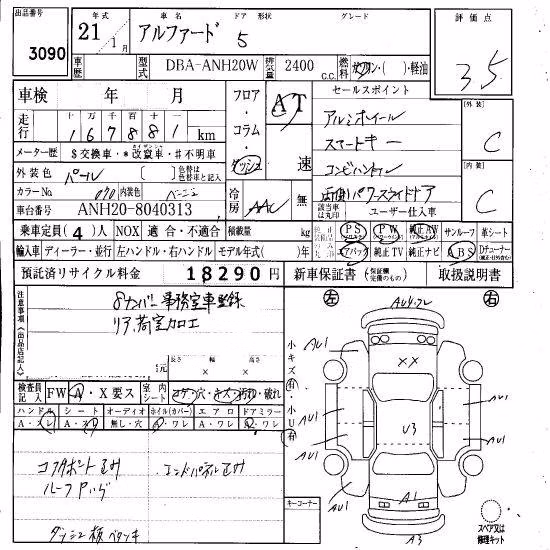 出品番号 3090
年式 21年 1月
車名 アルファード
ドア 形状 5
グレード
評価点 3.5
車歴
型式 DBA-ANH20W
排気量 2400 c.c.
燃料 ガソリン・( )・軽油
車検 年 月
フロア・コラム・ダッシュ
AT 速
セールスポイント
アルミホイール
スマートキー
コンビハンドル
両側パワースライドドア
外装 C
内装 C
走行 十 万 千 百 十 一
167881 km
メーター歴 $交換車・*改竄車・#不明車
外装色 パール
色替は色替車と記入
カラーNo. 070
内装色 ベージュ
車台番号 ANH20-8040313
冷房 AAC 無
該当車は丸印
ユーザー仕入車
乗車定員(4)人
NOX 適合・不適合
積載量 kg
純正装備品
PS
PW
純正AW
サンルーフ
革シート
輸入車 ディーラー・並行
左ハンドル・右ハンドル
モデル年式( )年
エアバッグ
純正TV
純正ナビ
ABS
Dチューナー
預託済リサイクル料金 18290円
新車保証書
取扱説明書
注意事項(出品店記入)
8ナンバー 事務室車登録
リア、荷室加工
長さ 幅 高さ
× ×
左 右
小キズ 有
小U 有
AU1
AU1
AU1
AU1
AU1
XX
U3
A1
A3
検査員記入 FW A・X要ス
室内シート コゲ・穴・キズ・汚れ・破れ
ハンドル シート オーディオ ホイル(カバー) エアロ ドアミラー
A・スレ A・スレ 無し・穴 A・ワレ A・ワレ A・ワレ
コアサポート
ルーフ
エンドパネル
ダッシュ板
キーコーナー
スペア又は修理キット